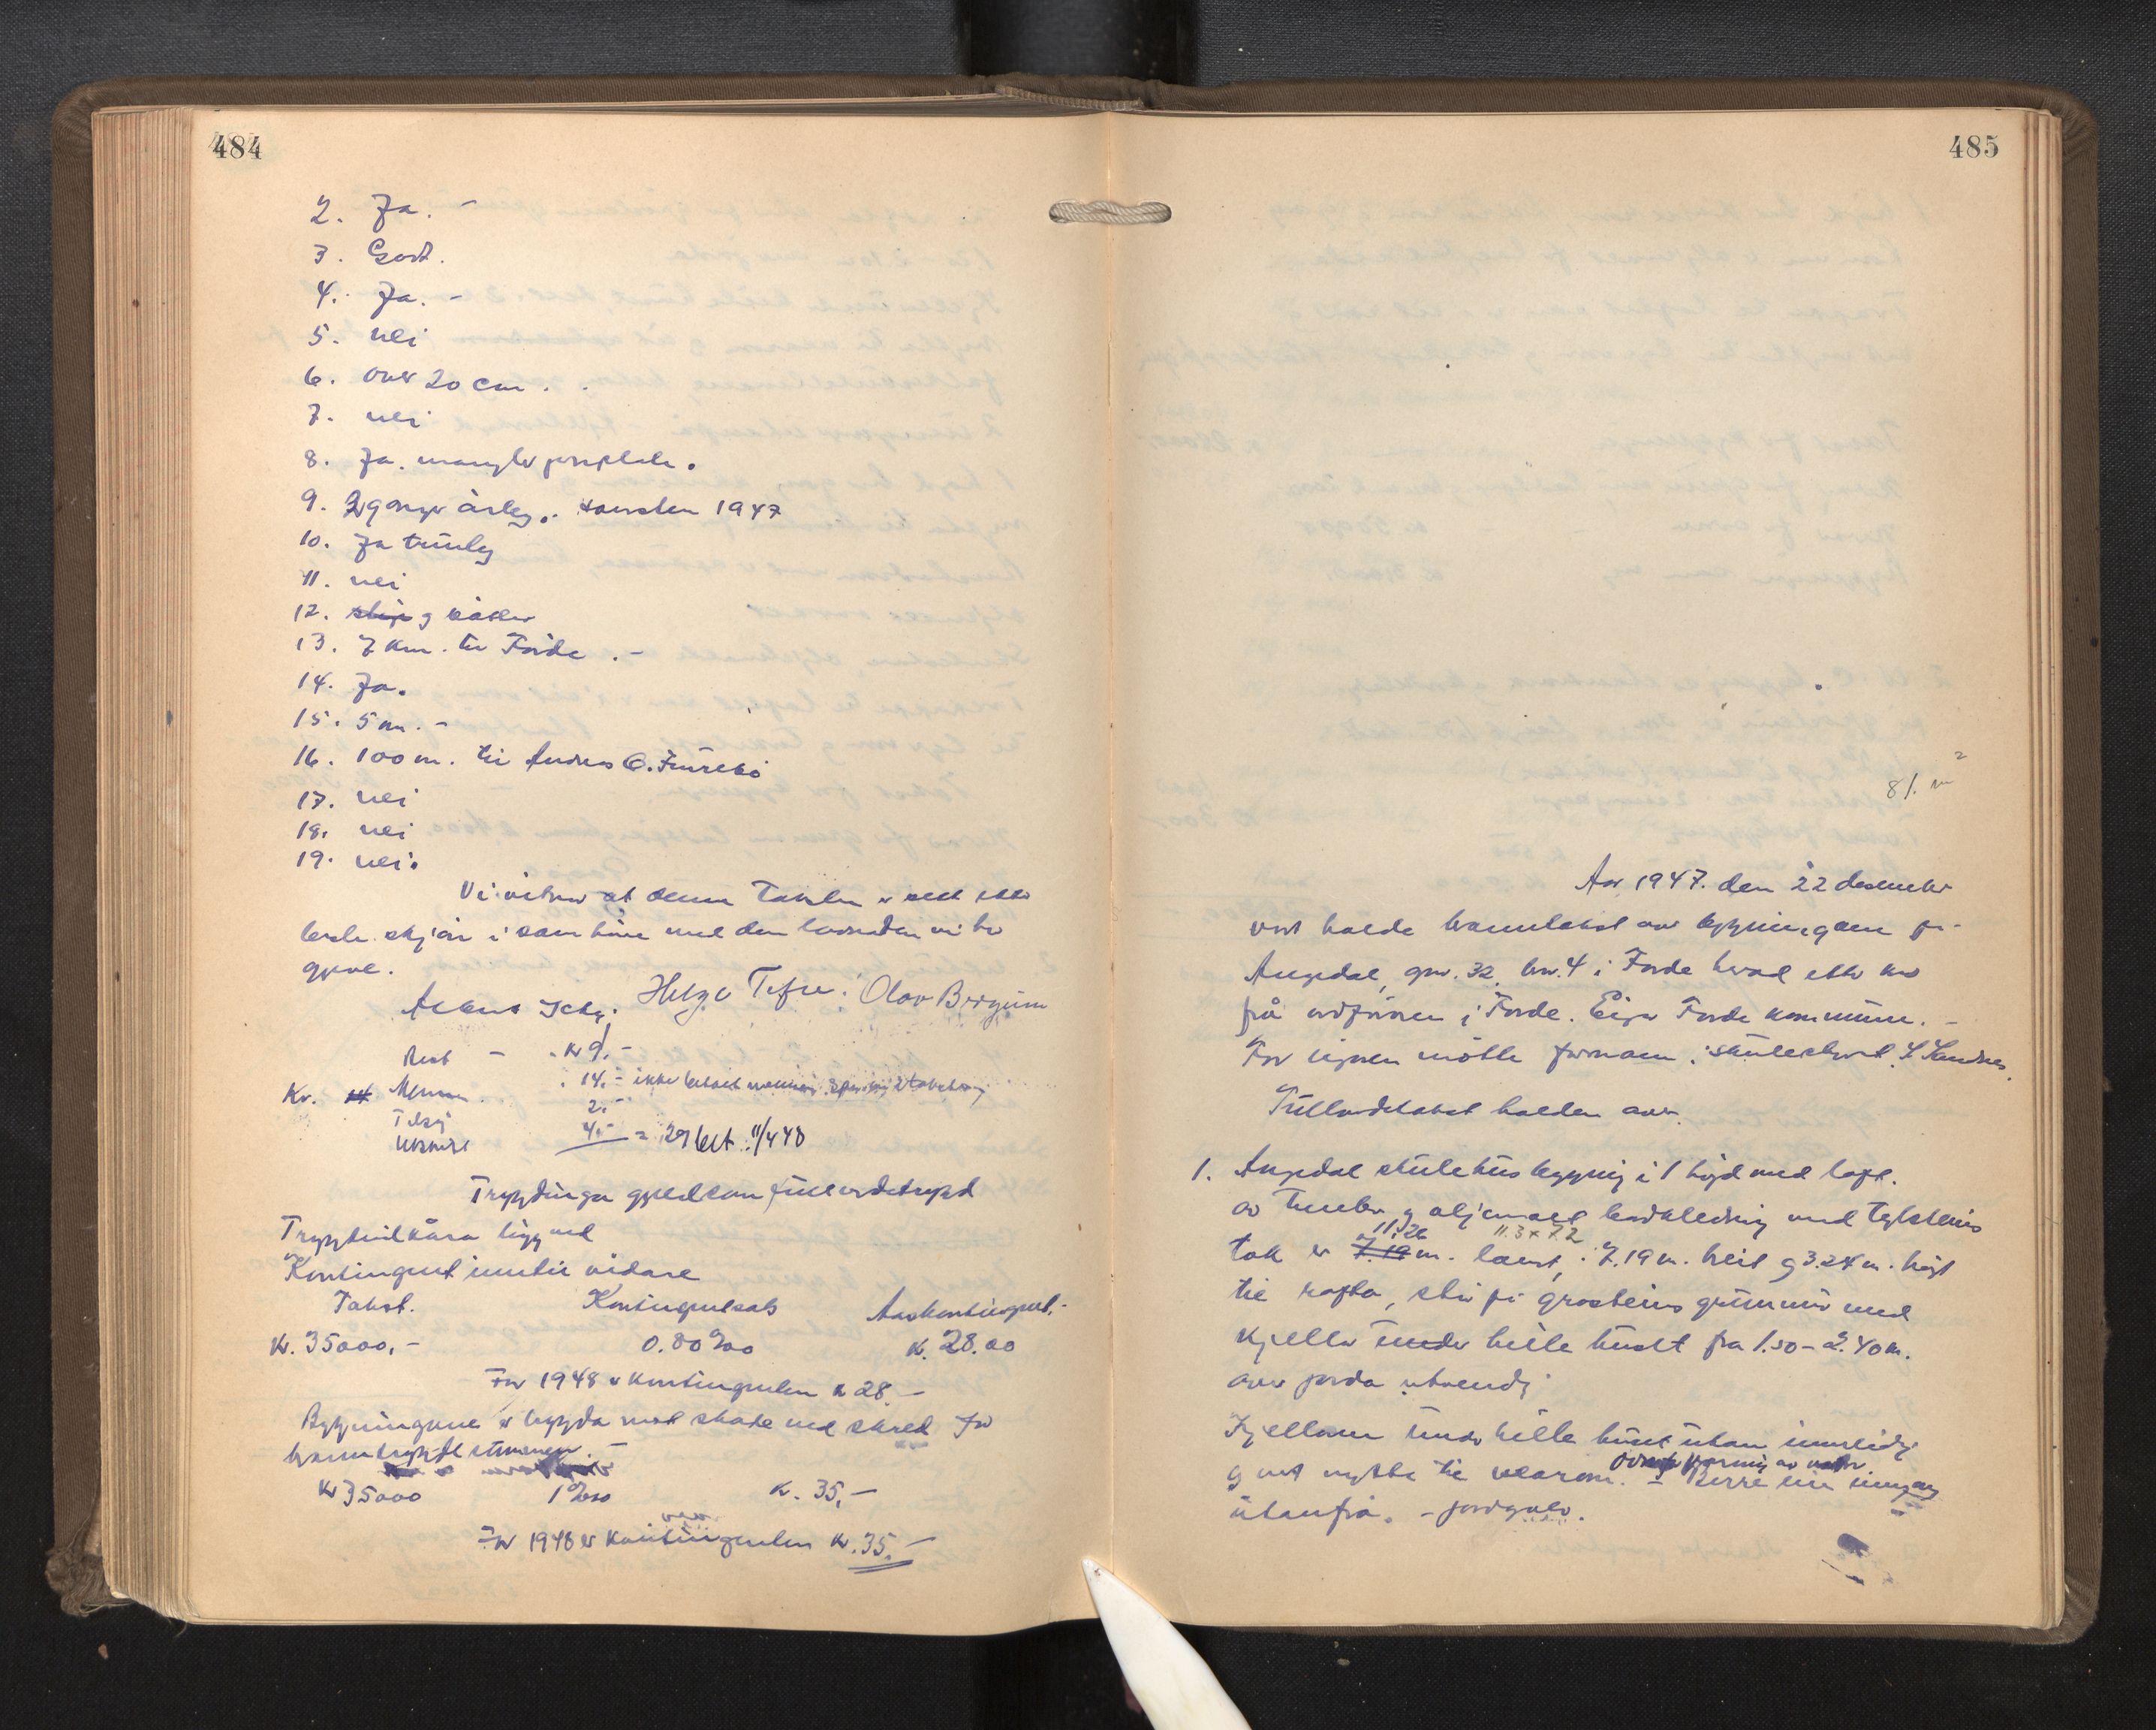 484
2. Ja. -
3. Godt.
4. Ja. -
5. nei
6. over 20 cm.
7. nei
8. Ja. mangler
9. 2 gonger årleg. hausten 1947
10. Ja truleg
11. nei
12. og
13. 7 km. til Førde. -
14. Ja.
15. 5 m. -
16. 100 m. til Andreas O.
17. nei
18. nei
19. nei.
Vi vitnar at denne taksten er sett etter
beste skjøn i samhøve med den lovnaden vi har
gjeve.
Helge Tefre. Olav Bergum
- kr 9. -
Kr. 14. - ikke betalt
2. -
4. - = 29 bet. 11/4 48
Trygdinga gjeld som fullverdetrygd
Trygdevilkåra ligg ved
Kontingent inntil vidare
Takst. Kontingentsats Årskontingent. -
Kr. 35000, - 0.80 ‰ Kr. 28.00
For 1948 er kontingenten kr 28 -
Bygningane er trygda mot skade ved skred for
branntrygdesummen. -
Kr 35000 1 ‰ Kr. 35, -
For 1948 er kontingenten Kr. 35. -
485
81. m²
Aar 1947. den 22 desember
vart halde branntakst over bygningane på
Angedal, gnr. 32, br.nr. 4 i Førde herad etter krav
frå ordføraren i Førde. Eigar Førde kommune. -
For eigaren møtte formann i skulestyret
Fullverdetakst halden over.
1. Angedal skulehus bygning i 1 høgd med loft.
av timber og oljemalt bordkledning med teglsteins
11.26 11.3 x 7.2
tak er 7.19 m. langt, 7.19 m. breit og 3.24 m. høgt
til rafta, står på gråsteins grunnmur med
kjellar under heile huset frå 1.50 - 2.40 m.
over jorda utvendig
Kjellaren under heile huset utan innreiing
og vert nytta til vedarom. - Berre ein inngang
utanfrå. - jordgolv.